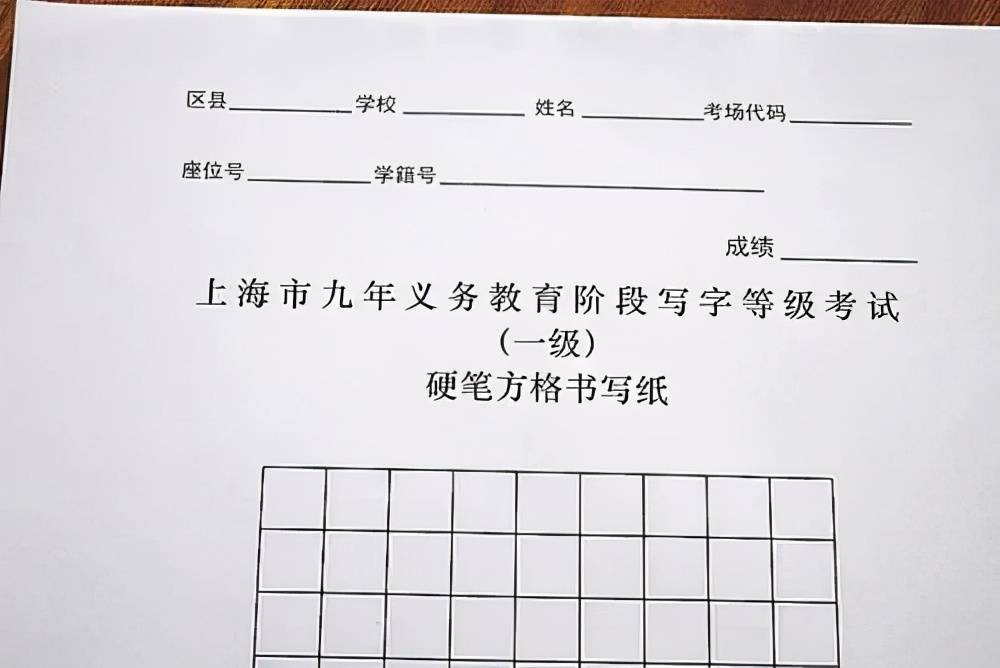 区县____________学校____________ 姓名____________考场代码____________
座位号____________学籍号________________________________
成绩____________
上海市九年义务教育阶段写字等级考试
（一级）
硬笔方格书写纸